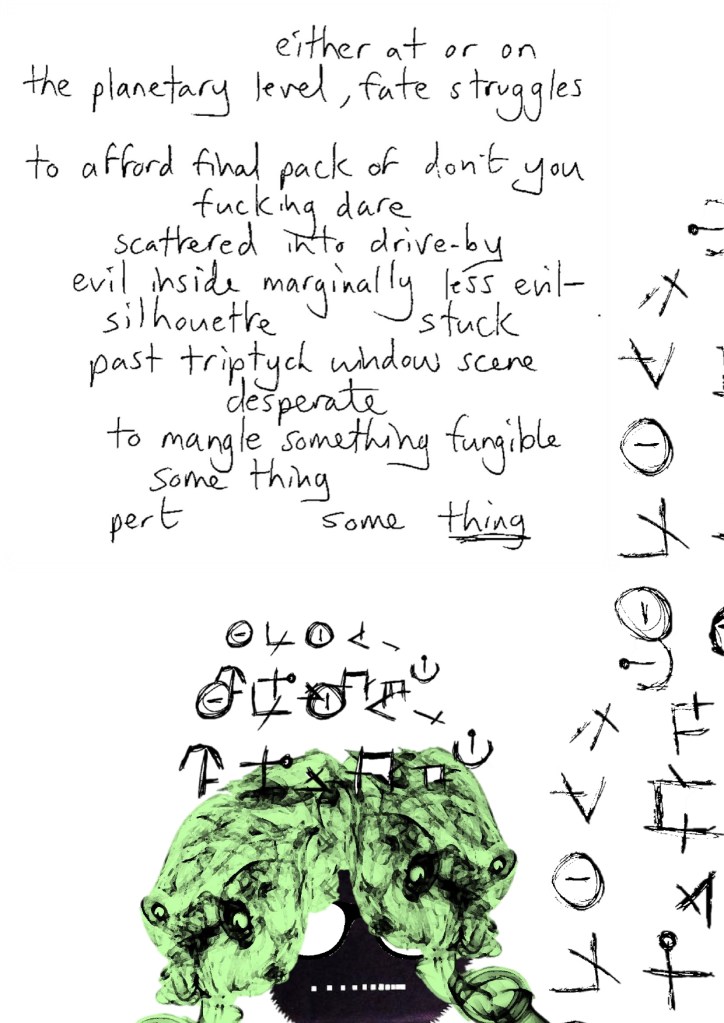 either at or on
the planetary level, fate struggles
to afford final pack of don't you
fucking dare
scattered into drive-by
evil inside marginally less evil-
silhouette stuck
past triptych window scene
desperate
to mangle something fungible
some thing
pert some thing